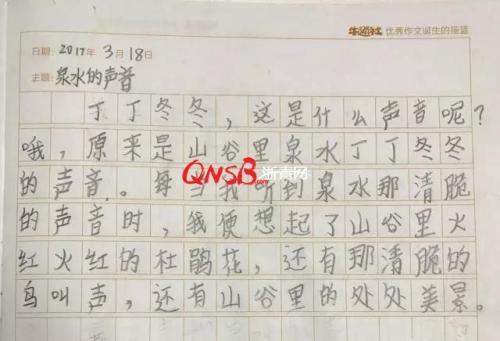 优秀作文诞生的摇篮
日期：2017年3月18日
主题：泉水的声音
丁丁冬冬，这是什么声音呢？
哦，原来是山谷里泉水丁丁冬冬
QNSB 浙青网
的声音。每当我听到泉水那清脆
的声音时，我便想起了山谷里火
红火红的杜鹃花，还有那清脆的
鸟叫声，还有山谷里的处处美景。